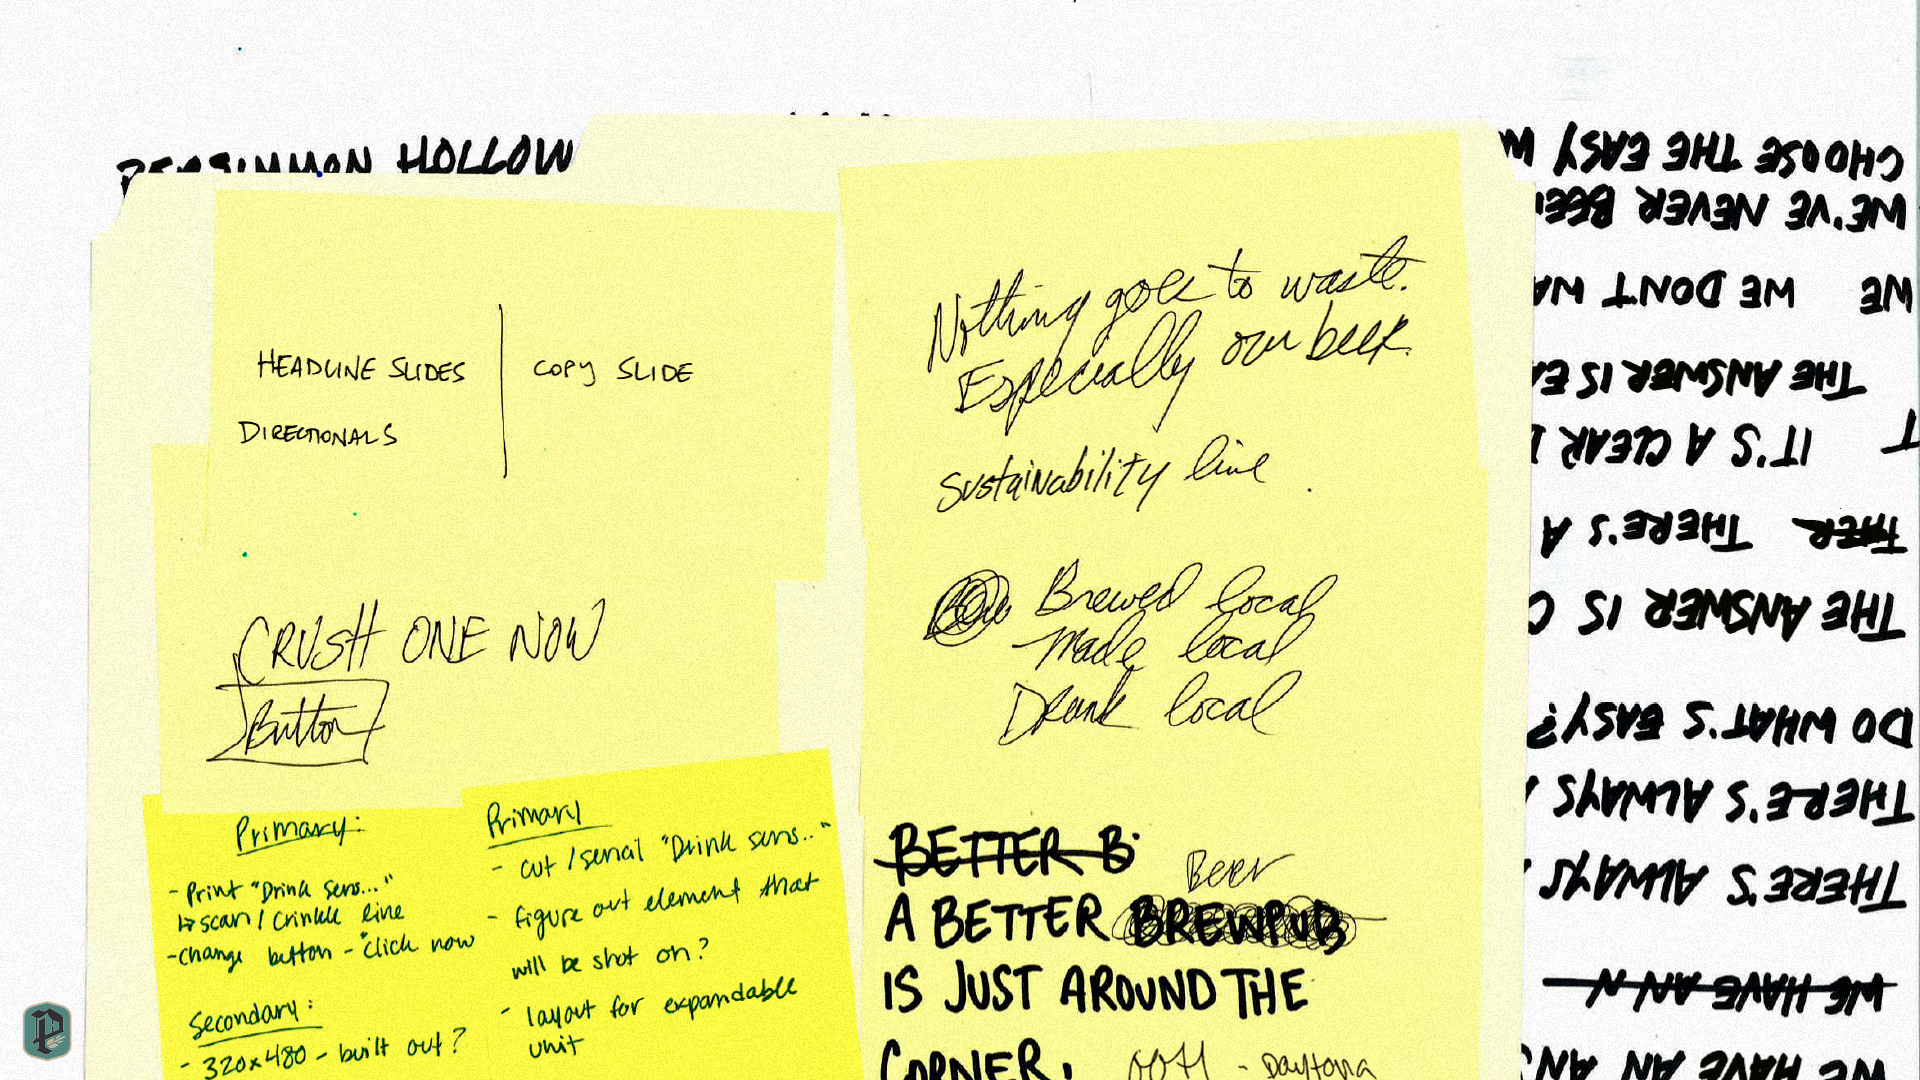 PERSIMMON HOLLOW
HEADLINE SLIDES
COPY SLIDE
DIRECTIONALS
CRUSH ONE NOW
Button
Primary:
- Print "Drink sens..."
↳ scan / crinkle line
- change button - "click now
Secondary:
- 320x480 - built out?
Primary
- cut / serial "Drink sens.."
- figure out element that
will be shot on?
- layout for expandable
unit
Nothing goes to waste.
Especially our beer.
sustainability line
Brewed local
Made local
Drank local
BETTER B
Beer
A BETTER BREWPUB
IS JUST AROUND THE
CORNER.
OOH - Daytona
WE HAVE AN
WE HAVE AN
THERE'S ALWAYS
THERE'S ALWAYS
DO WHAT'S EASY?
THE ANSWER IS
THER THERE'S A
IT'S A CLEAR
THE ANSWER IS
WE WE DON'T
WE'VE NEVER
CHOOSE THE EASY